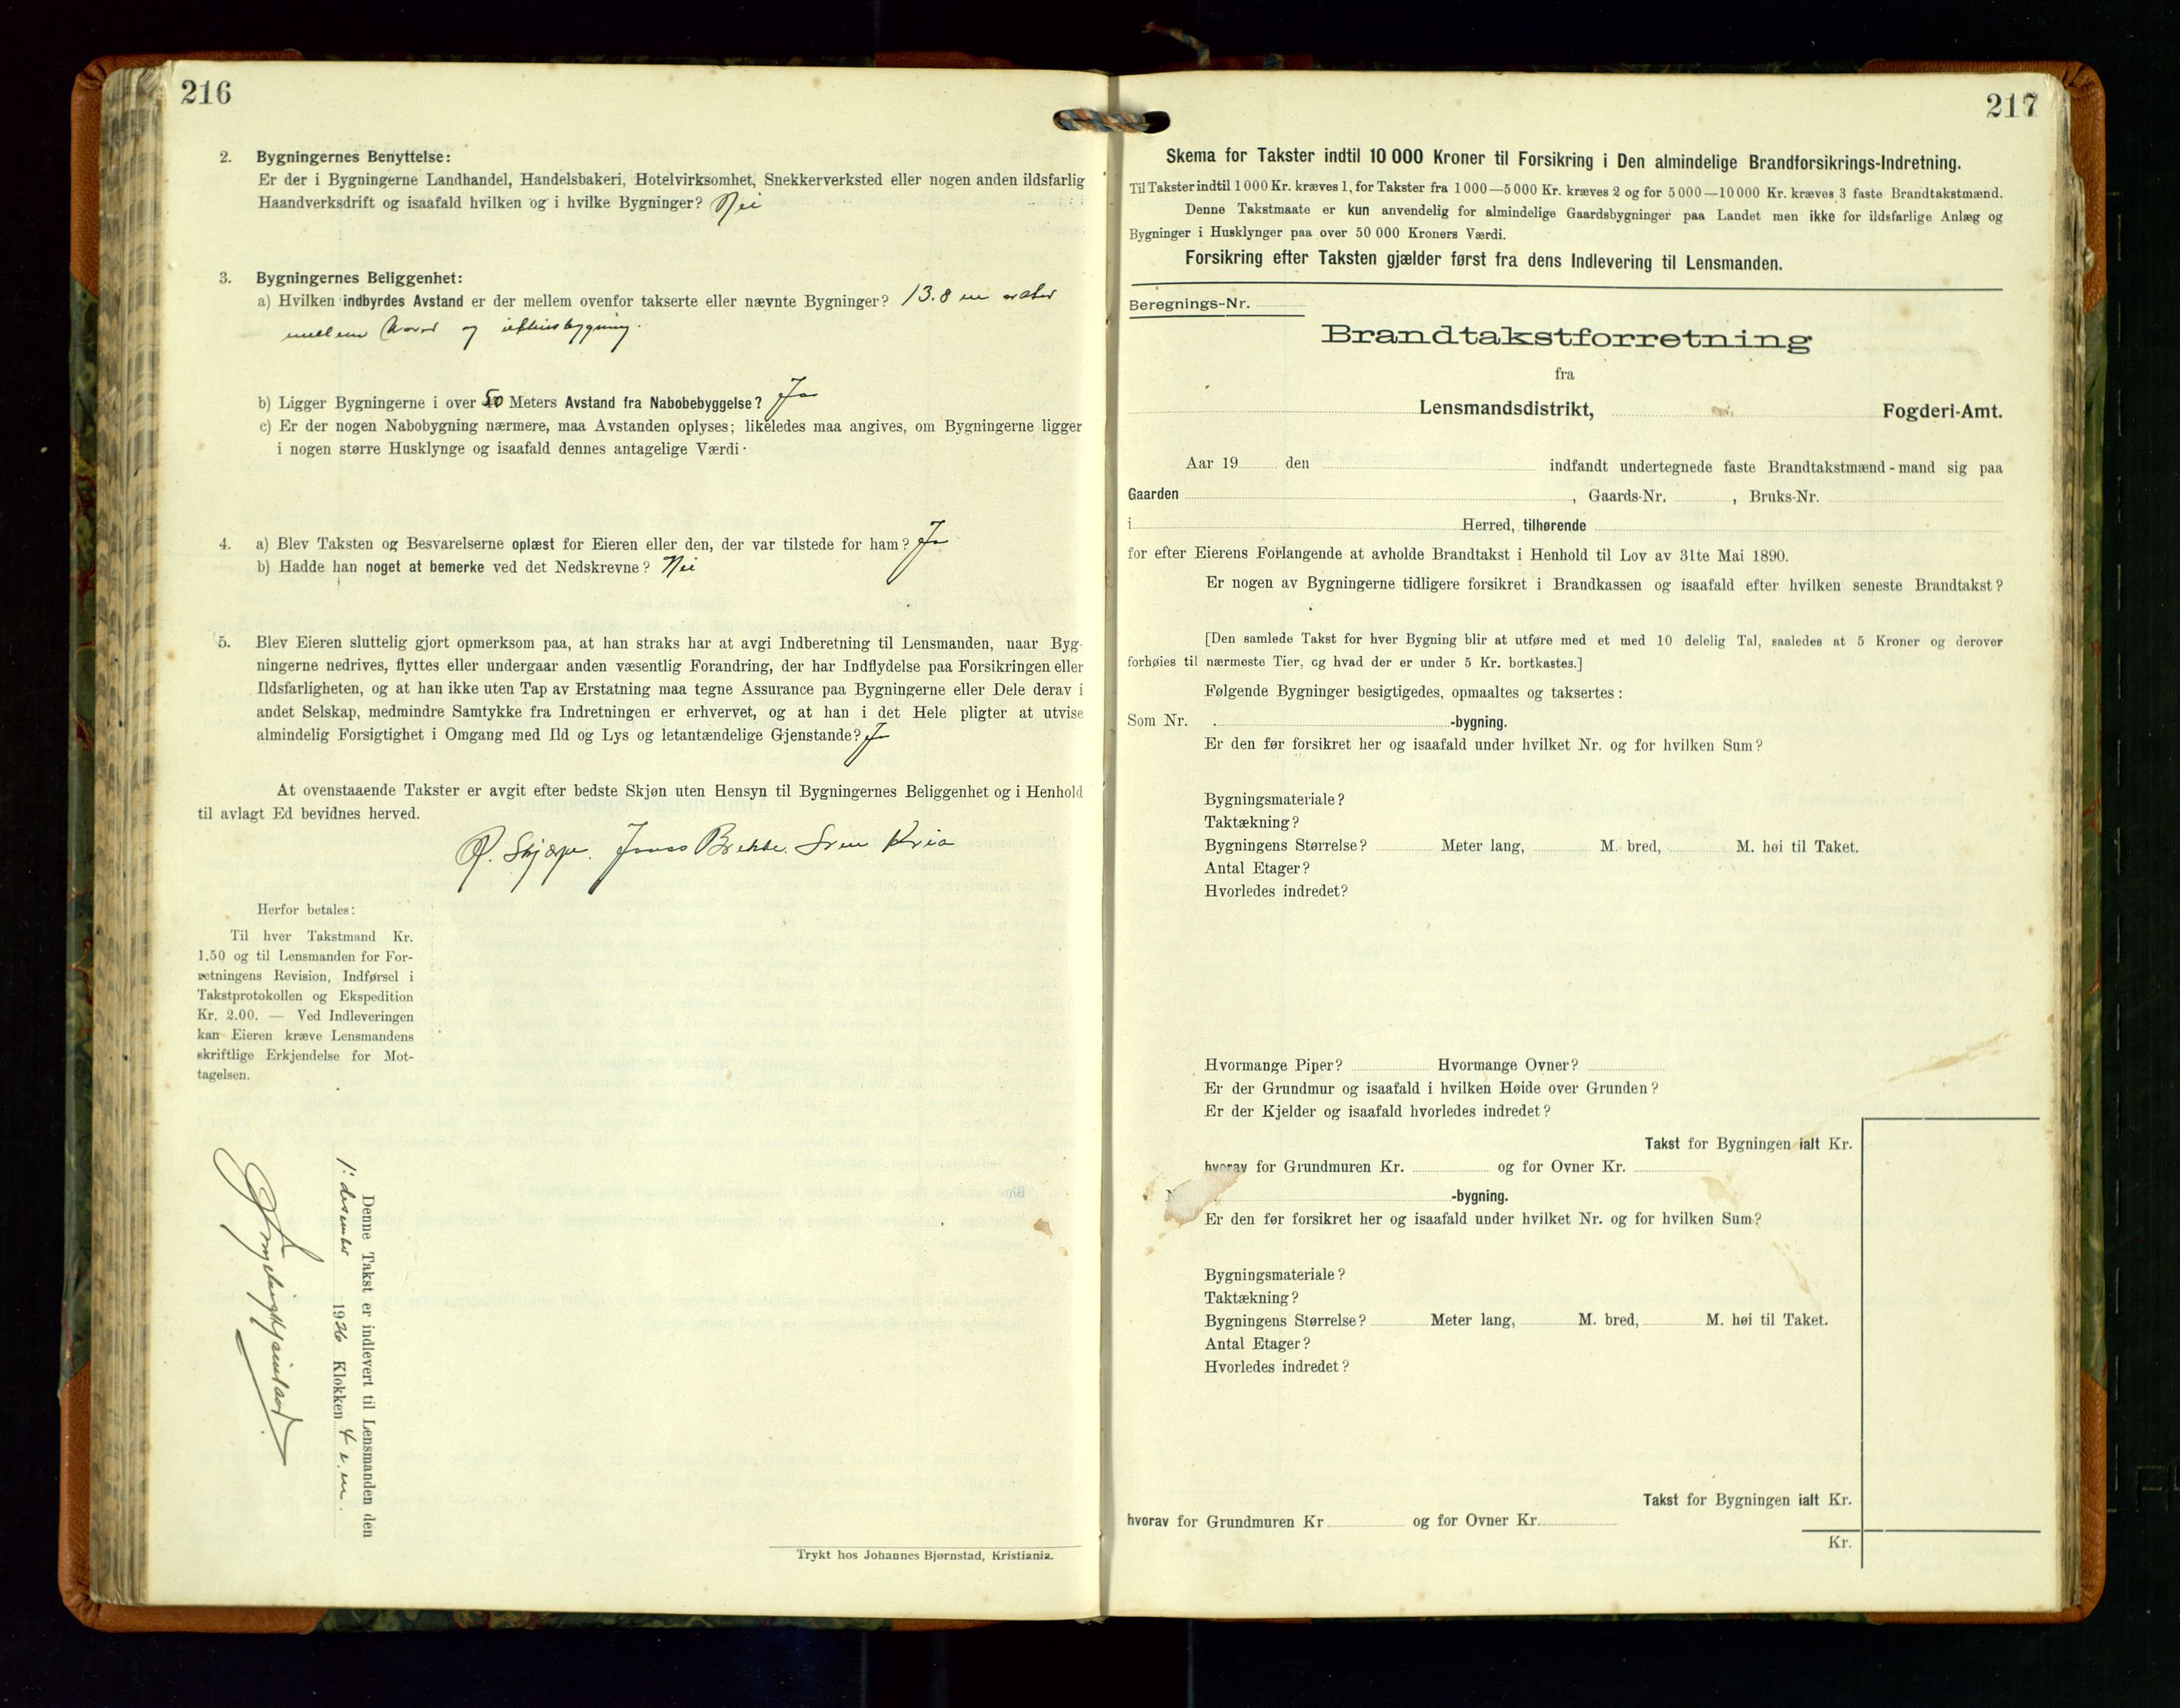 216
2. Bygningernes Benyttelse:
Er der i Bygningerne Landhandel, Handelsbakeri, Hotelvirksomhet, Snekkerverksted eller nogen anden ildsfarlig
Haandverksdrift og isaafald hvilken og i hvilke Bygninger? Nei
3. Bygningernes Beliggenhet:
a) Hvilken indbyrdes Avstand er der mellem ovenfor takserte eller nævnte Bygninger? 13.8 m
mellem og
b) Ligger Bygningerne i over 50 Meters Avstand fra Nabobebyggelse? Ja
c) Er der nogen Nabobygning nærmere, maa Avstanden oplyses; likeledes maa angives, om Bygningerne ligger
i nogen større Husklynge og isaafald dennes antagelige Værdi.
4. a) Blev Taksten og Besvarelserne oplæst for Eieren eller den, der var tilstede for ham? Ja
b) Hadde han noget at bemerke ved det Nedskrevne? Nei
5. Blev Eieren sluttelig gjort opmerksom paa, at han straks har at avgi Indberetning til Lensmanden, naar Byg-
ningerne nedrives, flyttes eller undergaar anden væsentlig Forandring, der har Indflydelse paa Forsikringen eller
Ildsfarligheten, og at han ikke uten Tap av Erstatning maa tegne Assurance paa Bygningerne eller Dele derav i
andet Selskap, medmindre Samtykke fra Indretningen er erhvervet, og at han i det Hele pligter at utvise
almindelig Forsigtighet i Omgang med Ild og Lys og letantændelige Gjenstande? Ja
At ovenstaaende Takster er avgit efter bedste Skjøn uten Hensyn til Bygningernes Beliggenhet og i Henhold
til avlagt Ed bevidnes herved.
Jonas Brekke.
Herfor betales:
Til hver Takstmand Kr.
1.50 og til Lensmanden for For-
retningens Revision, Indførsel i
Takstprotokollen og Ekspedition
Kr. 2.00. — Ved Indleveringen
kan Eieren kræve Lensmandens
skriftlige Erkjendelse for Mot-
tagelsen.
Denne Takst er indlevert til Lensmanden den
1. desember 1926 Klokken 4 e.m.
Trykt hos Johannes Bjørnstad, Kristiania.
217
Skema for Takster indtil 10 000 Kroner til Forsikring i Den almindelige Brandforsikrings-Indretning.
Til Takster indtil 1 000 Kr. kræves 1, for Takster fra 1 000—5 000 Kr. kræves 2 og for 5 000—10 000 Kr. kræves 3 faste Brandtakstmænd.
Denne Takstmaate er kun anvendelig for almindelige Gaardsbygninger paa Landet men ikke for ildsfarlige Anlæg og
Bygninger i Husklynger paa over 50 000 Kroners Værdi.
Forsikring efter Taksten gjælder først fra dens Indlevering til Lensmanden.
Beregnings-Nr.
Brandtakstforretning
fra
Lensmandsdistrikt, Fogderi-Amt.
Aar 19 den indfandt undertegnede faste Brandtakstmænd-mand sig paa
Gaarden , Gaards-Nr. , Bruks-Nr.
i Herred, tilhørende
for efter Eierens Forlangende at avholde Brandtakst i Henhold til Lov av 31te Mai 1890.
Er nogen av Bygningerne tidligere forsikret i Brandkassen og isaafald efter hvilken seneste Brandtakst?
[Den samlede Takst for hver Bygning blir at utføre med et med 10 delelig Tal, saaledes at 5 Kroner og derover
forhøies til nærmeste Tier, og hvad der er under 5 Kr. bortkastes.]
Følgende Bygninger besigtigedes, opmaaltes og taksertes:
Som Nr. -bygning.
Er den før forsikret her og isaafald under hvilket Nr. og for hvilken Sum?
Bygningsmateriale?
Taktækning?
Bygningens Størrelse? Meter lang, M. bred, M. høi til Taket.
Antal Etager?
Hvorledes indredet?
Hvormange Piper? Hvormange Ovner?
Er der Grundmur og isaafald i hvilken Høide over Grunden?
Er der Kjelder og isaafald hvorledes indredet?
Takst for Bygningen ialt Kr.
hvorav for Grundmuren Kr. og for Ovner Kr.
-bygning.
Er den før forsikret her og isaafald under hvilket Nr. og for hvilken Sum?
Bygningsmateriale?
Taktækning?
Bygningens Størrelse? Meter lang, M. bred, M. høi til Taket.
Antal Etager?
Hvorledes indredet?
Takst for Bygningen ialt Kr.
hvorav for Grundmuren Kr og for Ovner Kr.
Kr.